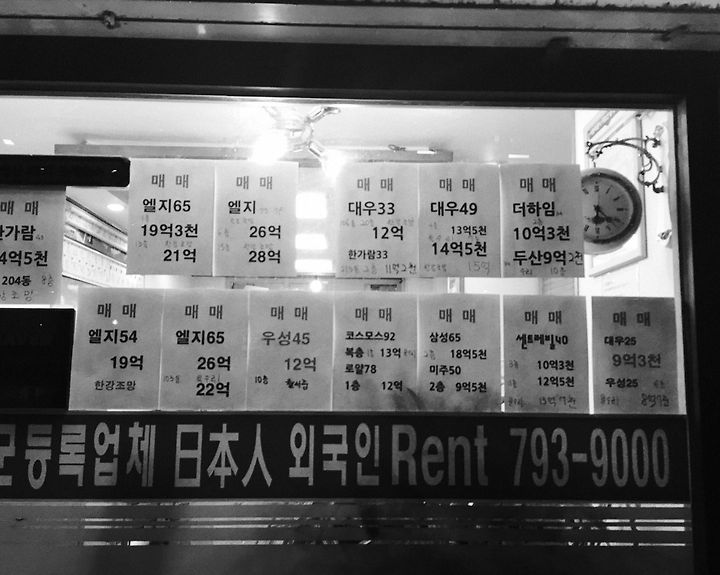 매매
한가람
4억5천
204동
매매
엘지65
19억3천
21억
매매
엘지
26억
28억
매매
대우33
12억
한가람33
11억2천
매매
대우49
13억5천
14억5천
15억
매매
더하임
10억3천
두산9억2천
매매
엘지54
19억
한강조망
매매
엘지65
26억
22억
매매
우성45
12억
10층
매매
코스모스92
복층 13억
로얄78
1층 12억
매매
삼성65
18억5천
미주50
2층 9억5천
매매
센트레빌40
10억3천
12억5천
13억7천
매매
대우25
9억3천
우성25
8억7천
군등록업체 日本人 외국인 Rent 793-9000